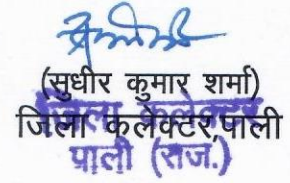 (सुधीर कुमार शर्मा)
जिला कलेक्टर
जिला कलेक्टर,पाली
पाली (राज.)